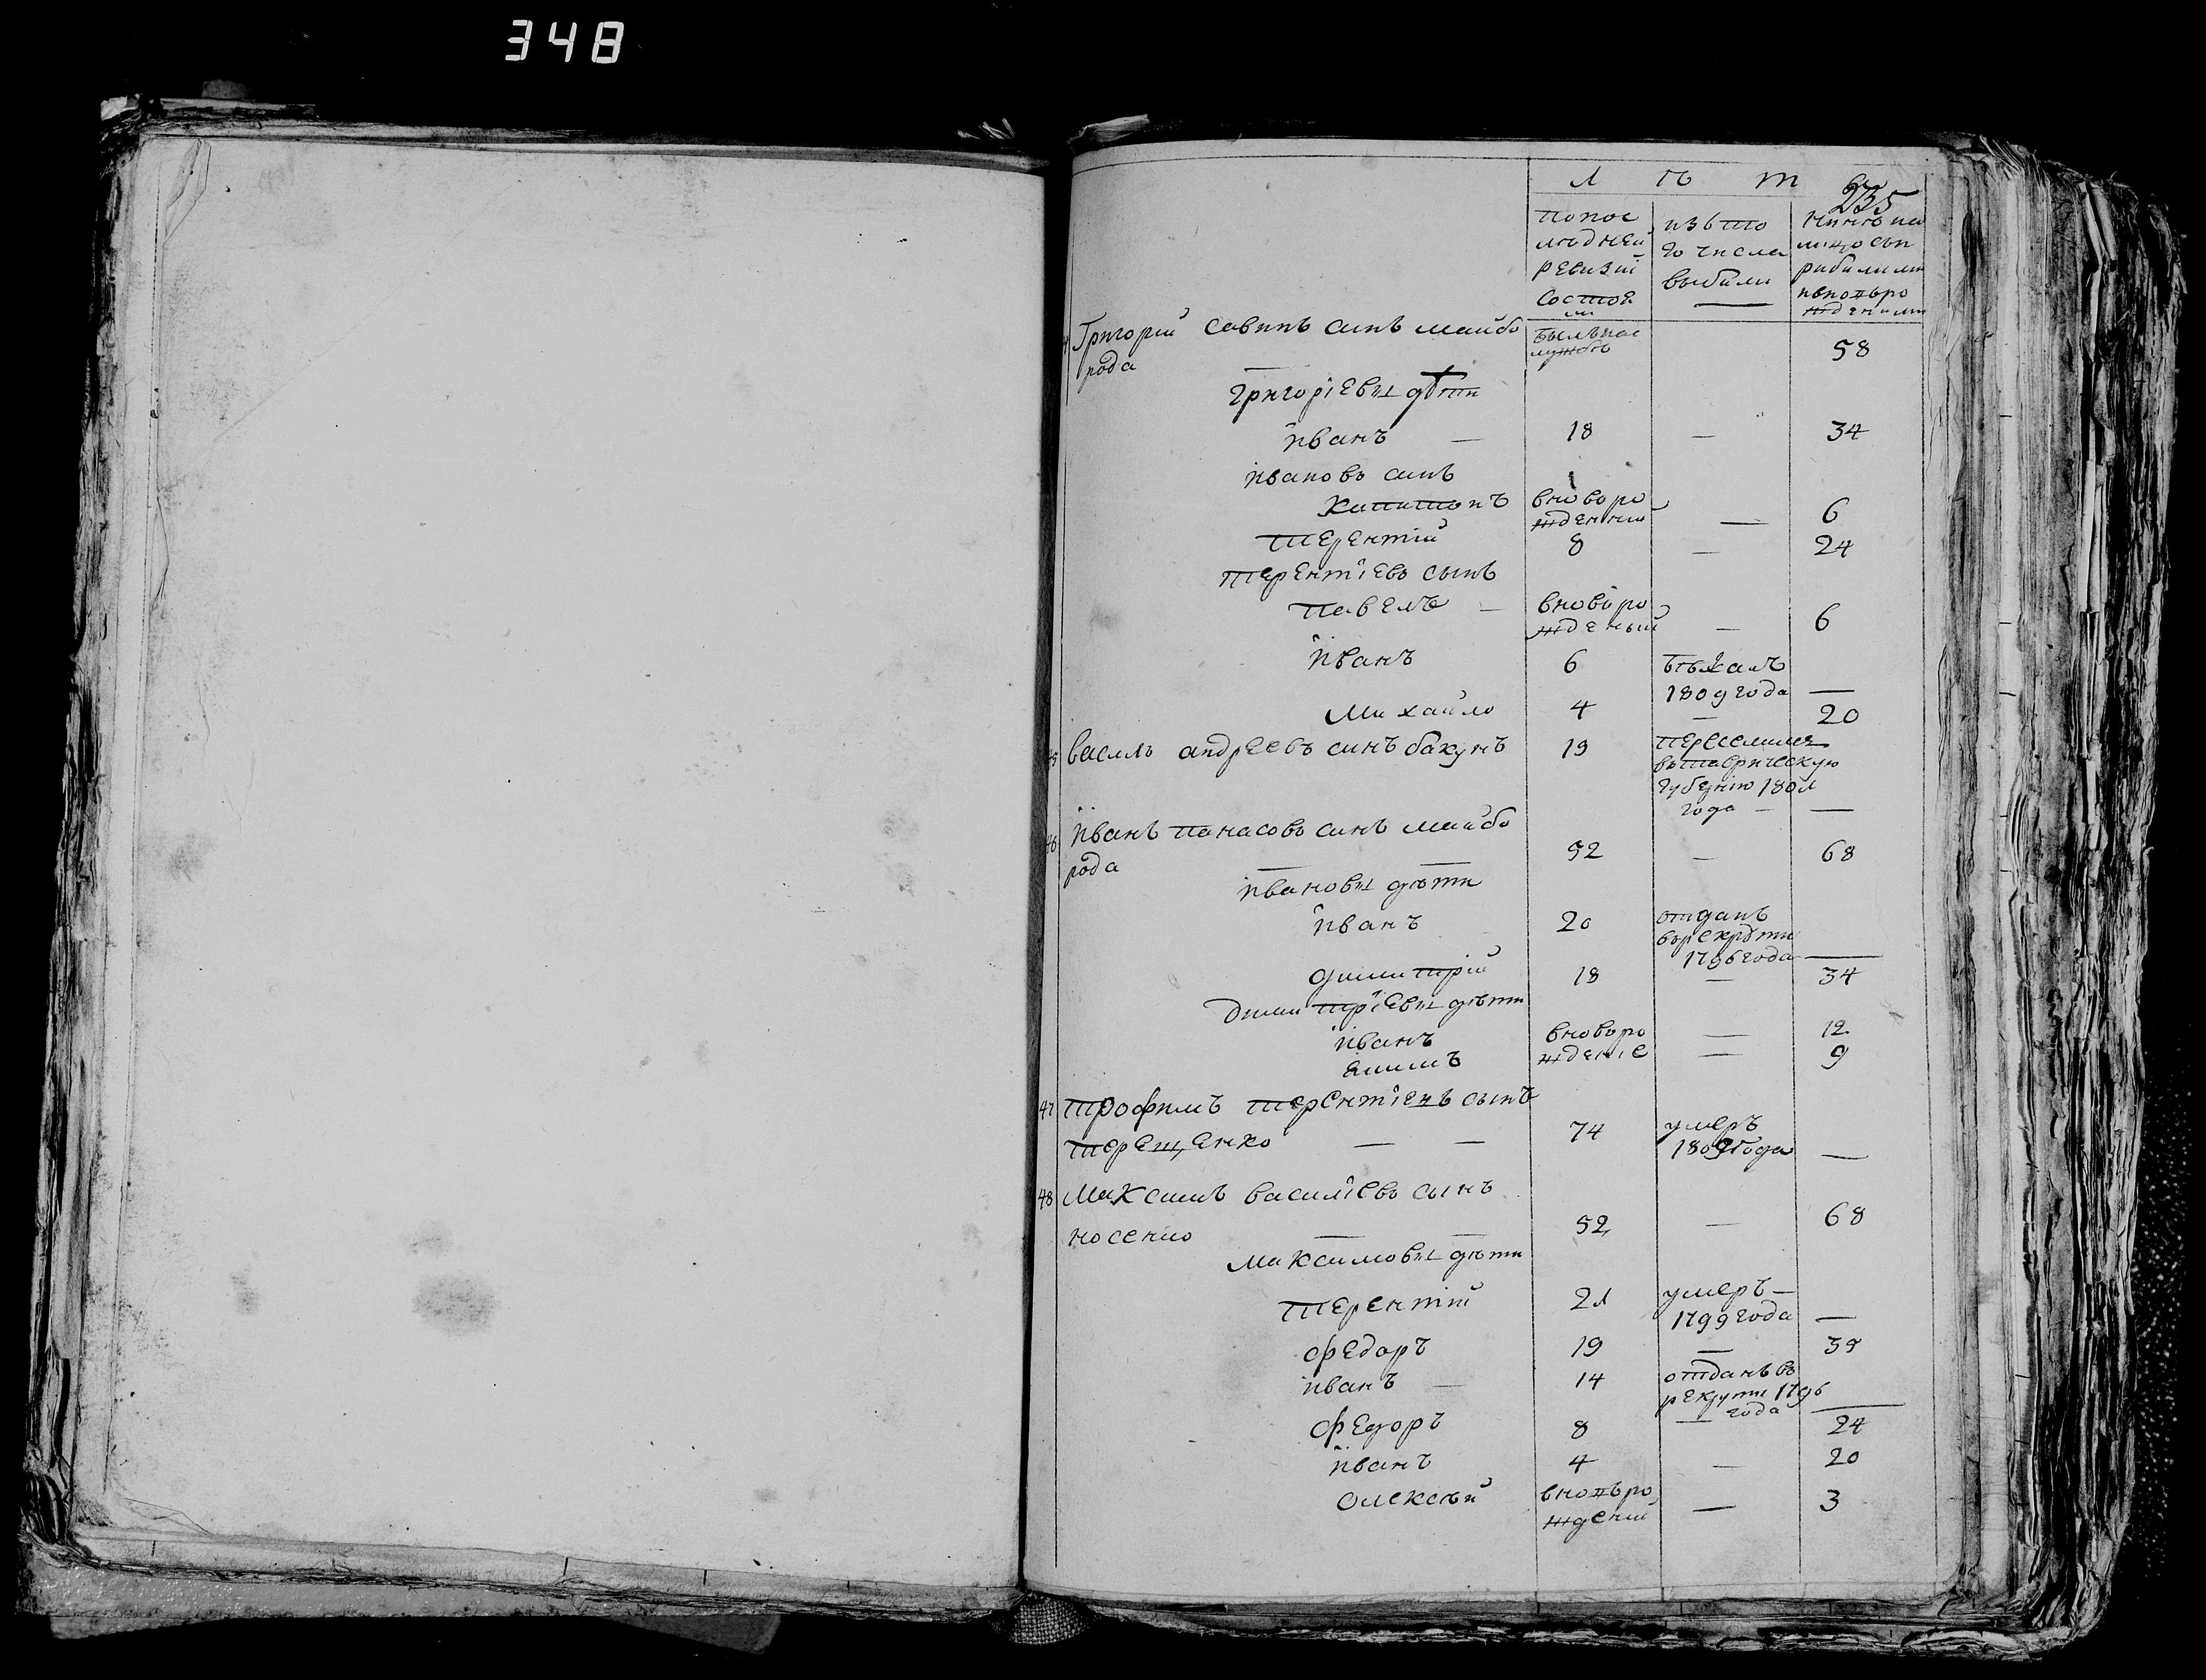 348
л ѣ т
235
по пос
лѣдней
ревизіи
состоя
ли
изъ то
го числа
выбыли
нынѣ на
лицо съ п
рибилыми
и вновьро
жденими
Григорий савинъ синъ майбо
рода
былъ в пос
лужбѣ
58
григоріевы дѣти
иванъ — 18 — 34
ивановъ синъ
Капитонъ вновъ ро
жденний — 6
терентій 8 — 24
терентіевъ сынъ
павелъ — вновъ ро
жденый — 6
иванъ 6 бѣжалъ
1809 года —
Михайло 4 — 20
45 василь андреевъ синъ бакунъ 19 переселился
въ таврическую
губернію 180л
года — —
46 иванъ панасовъ синъ майбо
рода 52 — 68
ивановы дѣти
иванъ 20 отданъ
въ рекруты
1796 года —
димитрій 18 — 34
димитріевы дѣти
иванъ вновъ ро — 12
ждение — 9
47 трофимъ терентіевъ сынъ
терещенко — — 74 умеръ
1809 года —
48 Максимъ василіевъ сынъ
носенко — — 52 — 68
максимовы дѣти
терентій 2л умеръ —
1799 года —
федоръ 19 — 35
иванъ — 14 отданъ въ
рекруты 1796
года —
федоръ 8 — 24
иванъ 4 — 20
олексѣй вновъ ро
ждений — 3